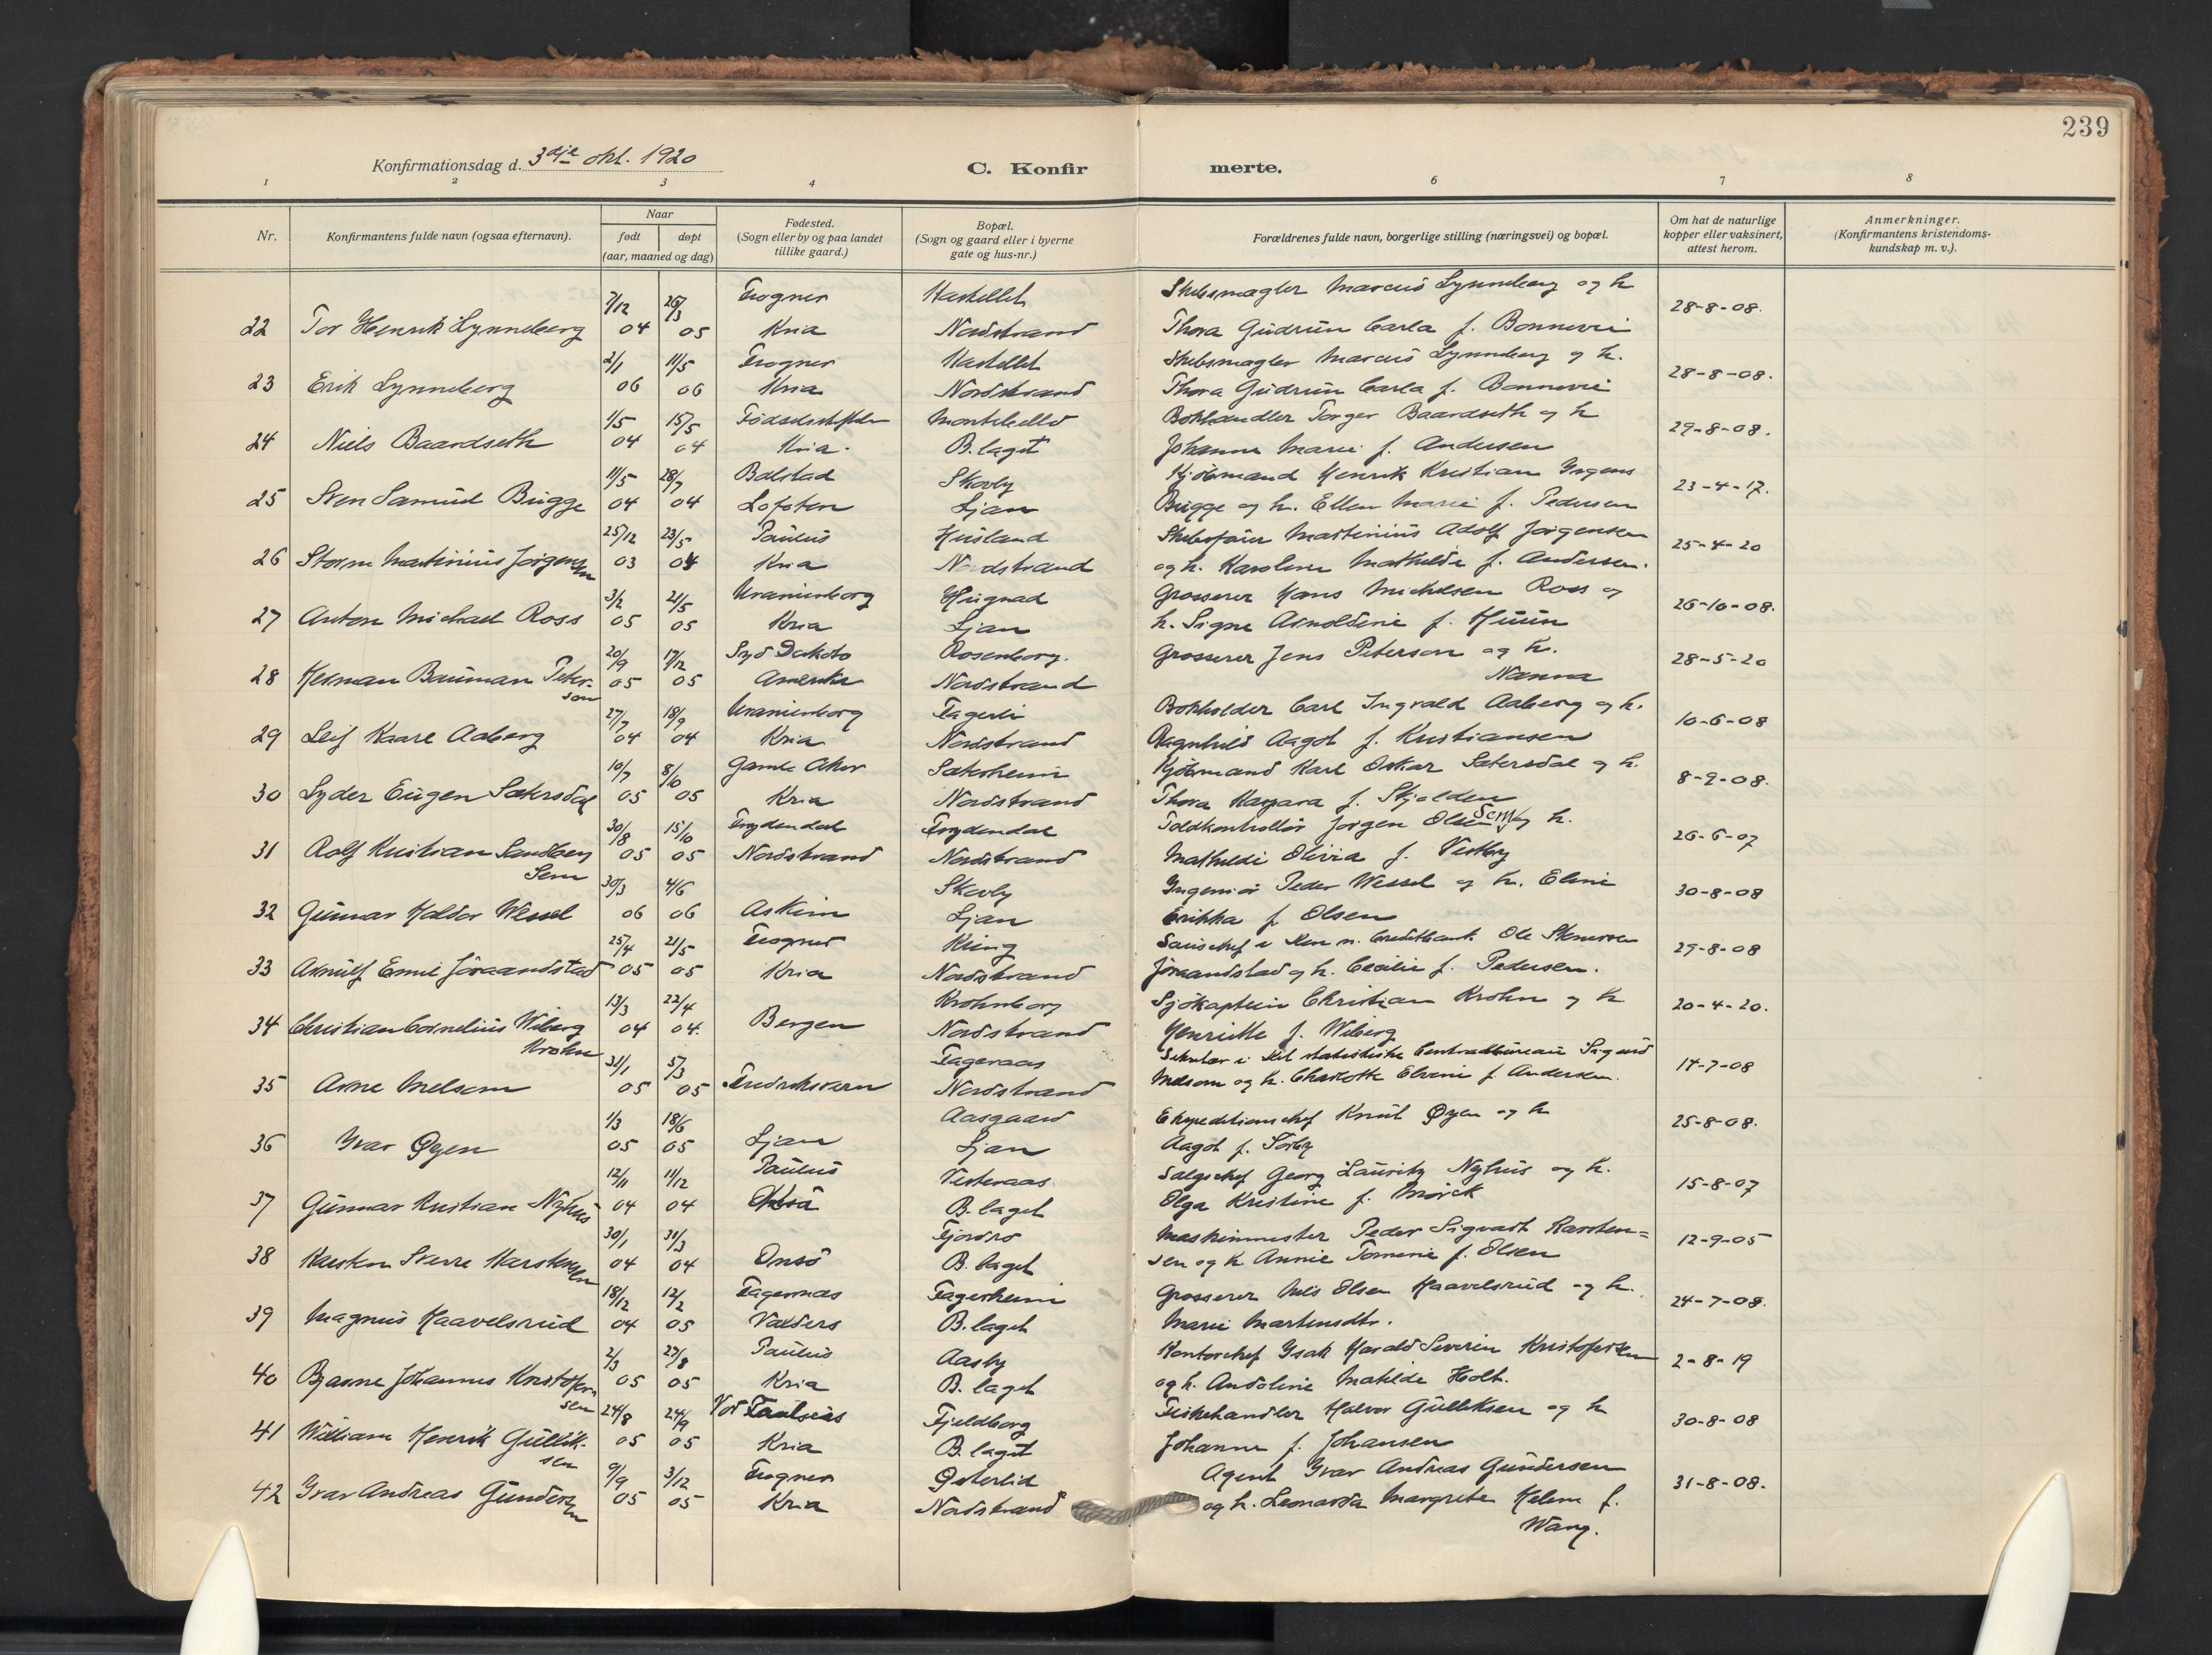 239
Konfirmationsdag d. 3dje okt. 1920
C. Konfirmerte.
1 2 3 4 6 7 8
Nr.
Konfirmantens fulde navn (ogsaa efternavn).
Naar
født døpt
(aar, maaned og dag)
Fødested.
(Sogn eller by og paa landet
tillike gaard.)
Bopæl.
(Sogn og gaard eller i byerne
gate og hus-nr.)
Forældrenes fulde navn, borgerlige stilling (næringsvei) og bopæl.
Om hat de naturlige
kopper eller vaksinert,
attest herom.
Anmerkninger.
(Konfirmantens kristendoms-
kundskap m. v.).
7/12 26/3 Frogner Kastellet Skibsmægler Marcus Lynneberg og h
22 Tor Henrik Lynneberg 04 05 Kria Nordstrand Thora Gudrun Carla f. Bonnevie 28-8-08.
2/1 11/5 Frogner Kastellet Skibsmægler Marcus Lynneberg og h.
23 Erik Lynneberg 06 06 Kria Nordstrand Thora Gudrun Carla f. Bonnevie 28-8-08.
1/5 15/5 Montebello Bokhandler Torger Baardseth og h
24 Niels Baardseth 04 04 Kria. B. laget Johanne Marie f. Andersen 29-8-08.
11/5 28/7 Balstad Skovly Kjøbmand Henrik Kristian Irgens
25 Sven Samuel Brügge 04 04 Lofoten Ljan Brügge og h. Ellen Marie f. Pedersen 23-4-17.
25/12 23/5 Paulus Husland Skibsfører Martinius Adolf Jørgensen
26 Storm Martinius Jørgensen 03 04 Kria Nordstrand og h. Karoline Mathilde f. Andersen. 25-4-20
3/2 21/5 Uranienborg Grosserer Hans Michelsen Ross og
27 Anton Michael Ross 05 05 Kria Ljan h. Signe Arnoldine f. Huun 26-10-08.
20/9 17/12 Syd Dakota Rosenborg. Grosserer Jens Peterson og h.
28 Herman Bauman Peter- 05 05 Amerika Nordstrand Nanna 28-5-20
son
27/7 18/9 Uranienborg Fagerli Bokholder Carl Ingvald Aaberg og h.
29 Leif Kaare Aaberg 04 04 Kria Nordstrand Ragnhild Aagot f. Kristiansen 10-6-08
10/7 8/10 Gamle Aker Sætersheim Kjøbmand Karl Oskar Sætersdal og h.
30 Lyder Eugen Sætersdal 05 05 Kria Nordstrand Thora Kaspara f. Skjolden 8-9-08.
30/8 15/10 Frydendal Frydendal Toldkontrollør Jørgen Olsen Sem og h.
31 Rolf Kristian Sandberg 05 05 Nordstrand Nordstrand Mathilde Olivia f. Vestby 26-6-07
Sem
30/3 4/6 Skovly Ingeniør Peder Wessel og h. Eline
32 Gunnar Haldor Wessel 06 06 Askim Ljan Erikka f. Olsen 30-8-08
25/4 21/5 Frogner Kring Ole
33 Arnulf Emil Jøraandstad 05 05 Kria Nordstrand Jøraandstad og h. Cecilie f. Pedersen. 29-8-08
13/3 22/4 Krohnborg Sjøkaptein Christian Krohn og h.
34 Christian Cornelius Wiberg 04 04. Bergen Nordstrand Henriette f. Wiberg 20-4-20.
Krohn
31/1 5/3 Fageraas Sekretær i det statistiske Centralbureau Sigurd
35 Arne Melsom 05 05 Fredriksvern Nordstrand Melsom og h. Charlotte Elvine f. Andersen. 17-7-08
1/3 18/6 Aasgaard Ekspeditionschef Knut Øyen og h
36 Ivar Øyen 05 05 Ljan Ljan Aagot f. Sørby 25-8-08.
12/11 11/12 Paulus Vesteraas Salgschef Georg Lauritz Nyhus og h.
37 Gunnar Kristian Nyhus 04 04 Kria B. laget Olga Kristine f. Mørck 15-8-07
30/1 31/3 Fjordro Maskinmester Peder Sigvart Karsten=
38 Karsten Sverre Karstensen 04 04 Onsø B. laget sen og h. Annie Tomine f. Olsen 12-9-05
18/12 12/2 Fagernæs Fagerheim Grosserer Nils Olsen Haavelsrud og h.
39 Magnus Haavelsrud 04 05 Valders B. laget Marie Martensdtr. 24-7-08.
2/3 27/8 Paulus Aasly Kontorchef Isak Harald Severin Kristofersen
40 Bjarne Johannes Kristofer- 05 05 Kria B. laget og h. Andoline Matilde Holt. 2-8-19
sen
24/8 24/9 Vor Frelsers Fjeldborg Fiskehandler Halvor Gulliksen og h
41 William Henrik Gullik- 05 05 Kria B. laget Johanne f. Johansen 30-8-08
sen
9/9 3/12 Frogner Østerlid Agent Ivar Andreas Gundersen
42 Ivar Andreas Gundersen 05 05 Kria Nordstrand og h. Leonarda Margrete Helene f. 31-8-08.
Wang.